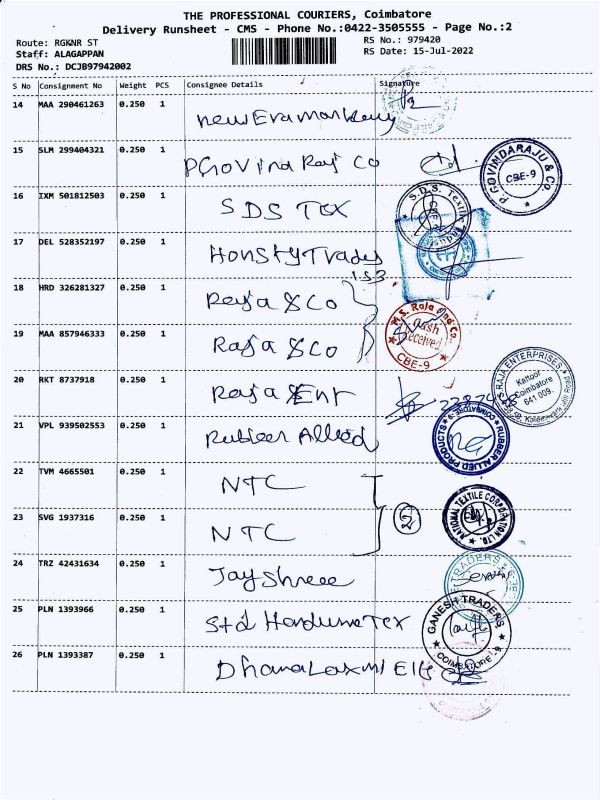 THE PROFESSIONAL COURIERS, Coimbatore
Delivery Runsheet - CMS - Phone No.:0422-3505555 - Page No.:2
Route: RGKNR ST
RS No.: 979420
Staff: ALAGAPPAN
RS Date: 15-Jul-2022
DRS No.: DCJB97942002
S No Consignment No Weight PCS Consignee Details Signature
14 MAA 290461263 0.250 1 New Era
15 SLM 299404321 0.250 1 PGovind Raj Co
P. GOVINDARAJU & CO. CBE-9
16 IXM 501812503 0.250 1 SDS Tex
S.D.S. Textile
17 DEL 528352197 0.250 1 Honsty Trades
153
18 HRD 326281327 0.250 1 Raja & Co
M.S. Raja and Co. Cash Received CBE-9
19 MAA 857946333 0.250 1 Raja & Co
20 RKT 8737918 0.250 1 Raja Ent
RAJA ENTERPRISES Kattoor Coimbatore 641 009.
21 VPL 939502553 0.250 1 Rubber Allied
RUBBER ALLIED PRODUCTS COIMBATORE-9
22 TVM 4665501 0.250 1 NTC
2
NATIONAL TEXTILE CORPORATION LTD.
23 SVG 1937316 0.250 1 NTC
24 TRZ 42431634 0.250 1 Jayshree
TRADERS
25 PLN 1393966 0.250 1 Std Hardume Tex
GANESH TRADERS COIMBATORE-9
26 PLN 1393387 0.250 1 Dhanalaxmi Ele